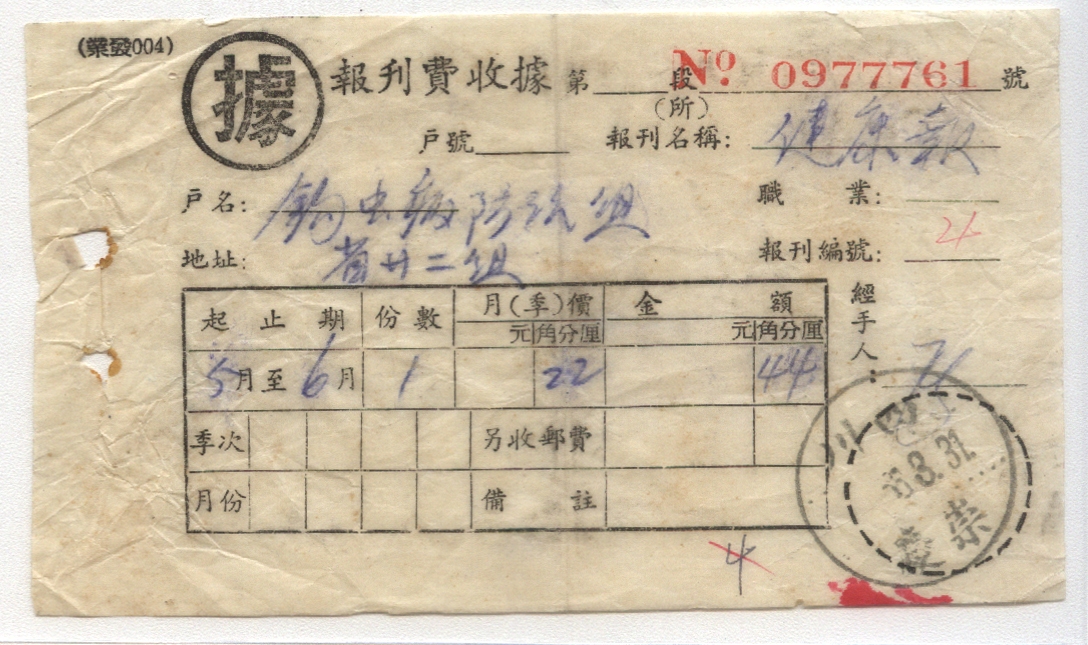 (業發004)
據 報刊費收據 第 段(所) № 0977761 號
戶號 報刊名稱: 健康報
戶名: 鈎虫病防治組 職業:
地址: 省廿二組 報刊編號: 21
經手人:
起止期 份數 月(季)價 金額
元角分厘 元角分厘
5月至6月 1 22 44
季次 另收郵費
月份 備註
四川
3.31
崇慶
4